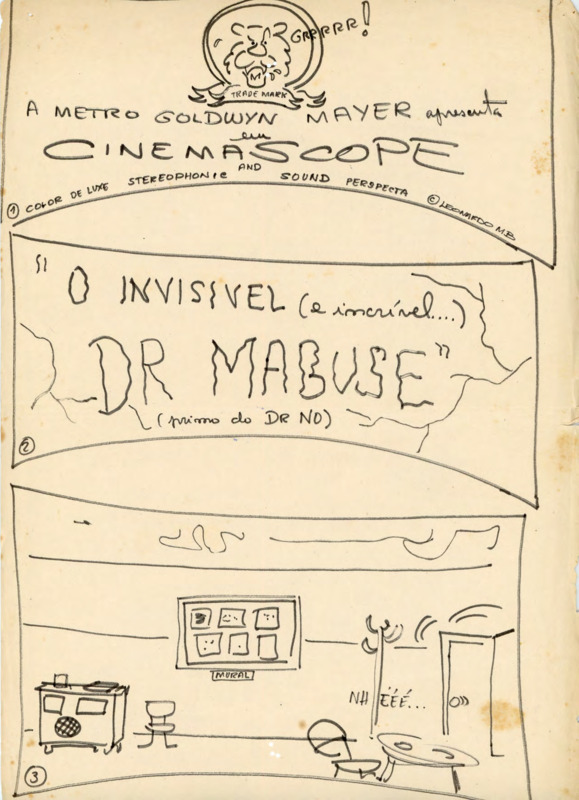 GRRRRR!
M
TRADE MARK
A METRO GOLDWYN MAYER apresenta
em
CINEMASCOPE
① COLOR DE LUXE STEREOPHONIC AND SOUND PERSPECTA © LEONARDO M.B
"O INVISIVEL (e incrível....)
DR MABUSE"
(primo do DR NO)
②
MURAL
NHÉÉÉ...
③